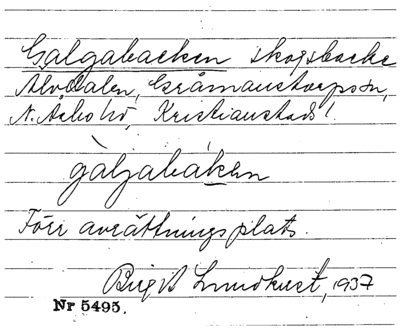 Galgabacken skogsbacke
Älvdalen, Gråmanstorps sn,
N. Åsbo hd, Kristianstads l.
gàljabákən
Förr avrättningsplats.
Birgit Lundkvist, 1937
Nr 5495.